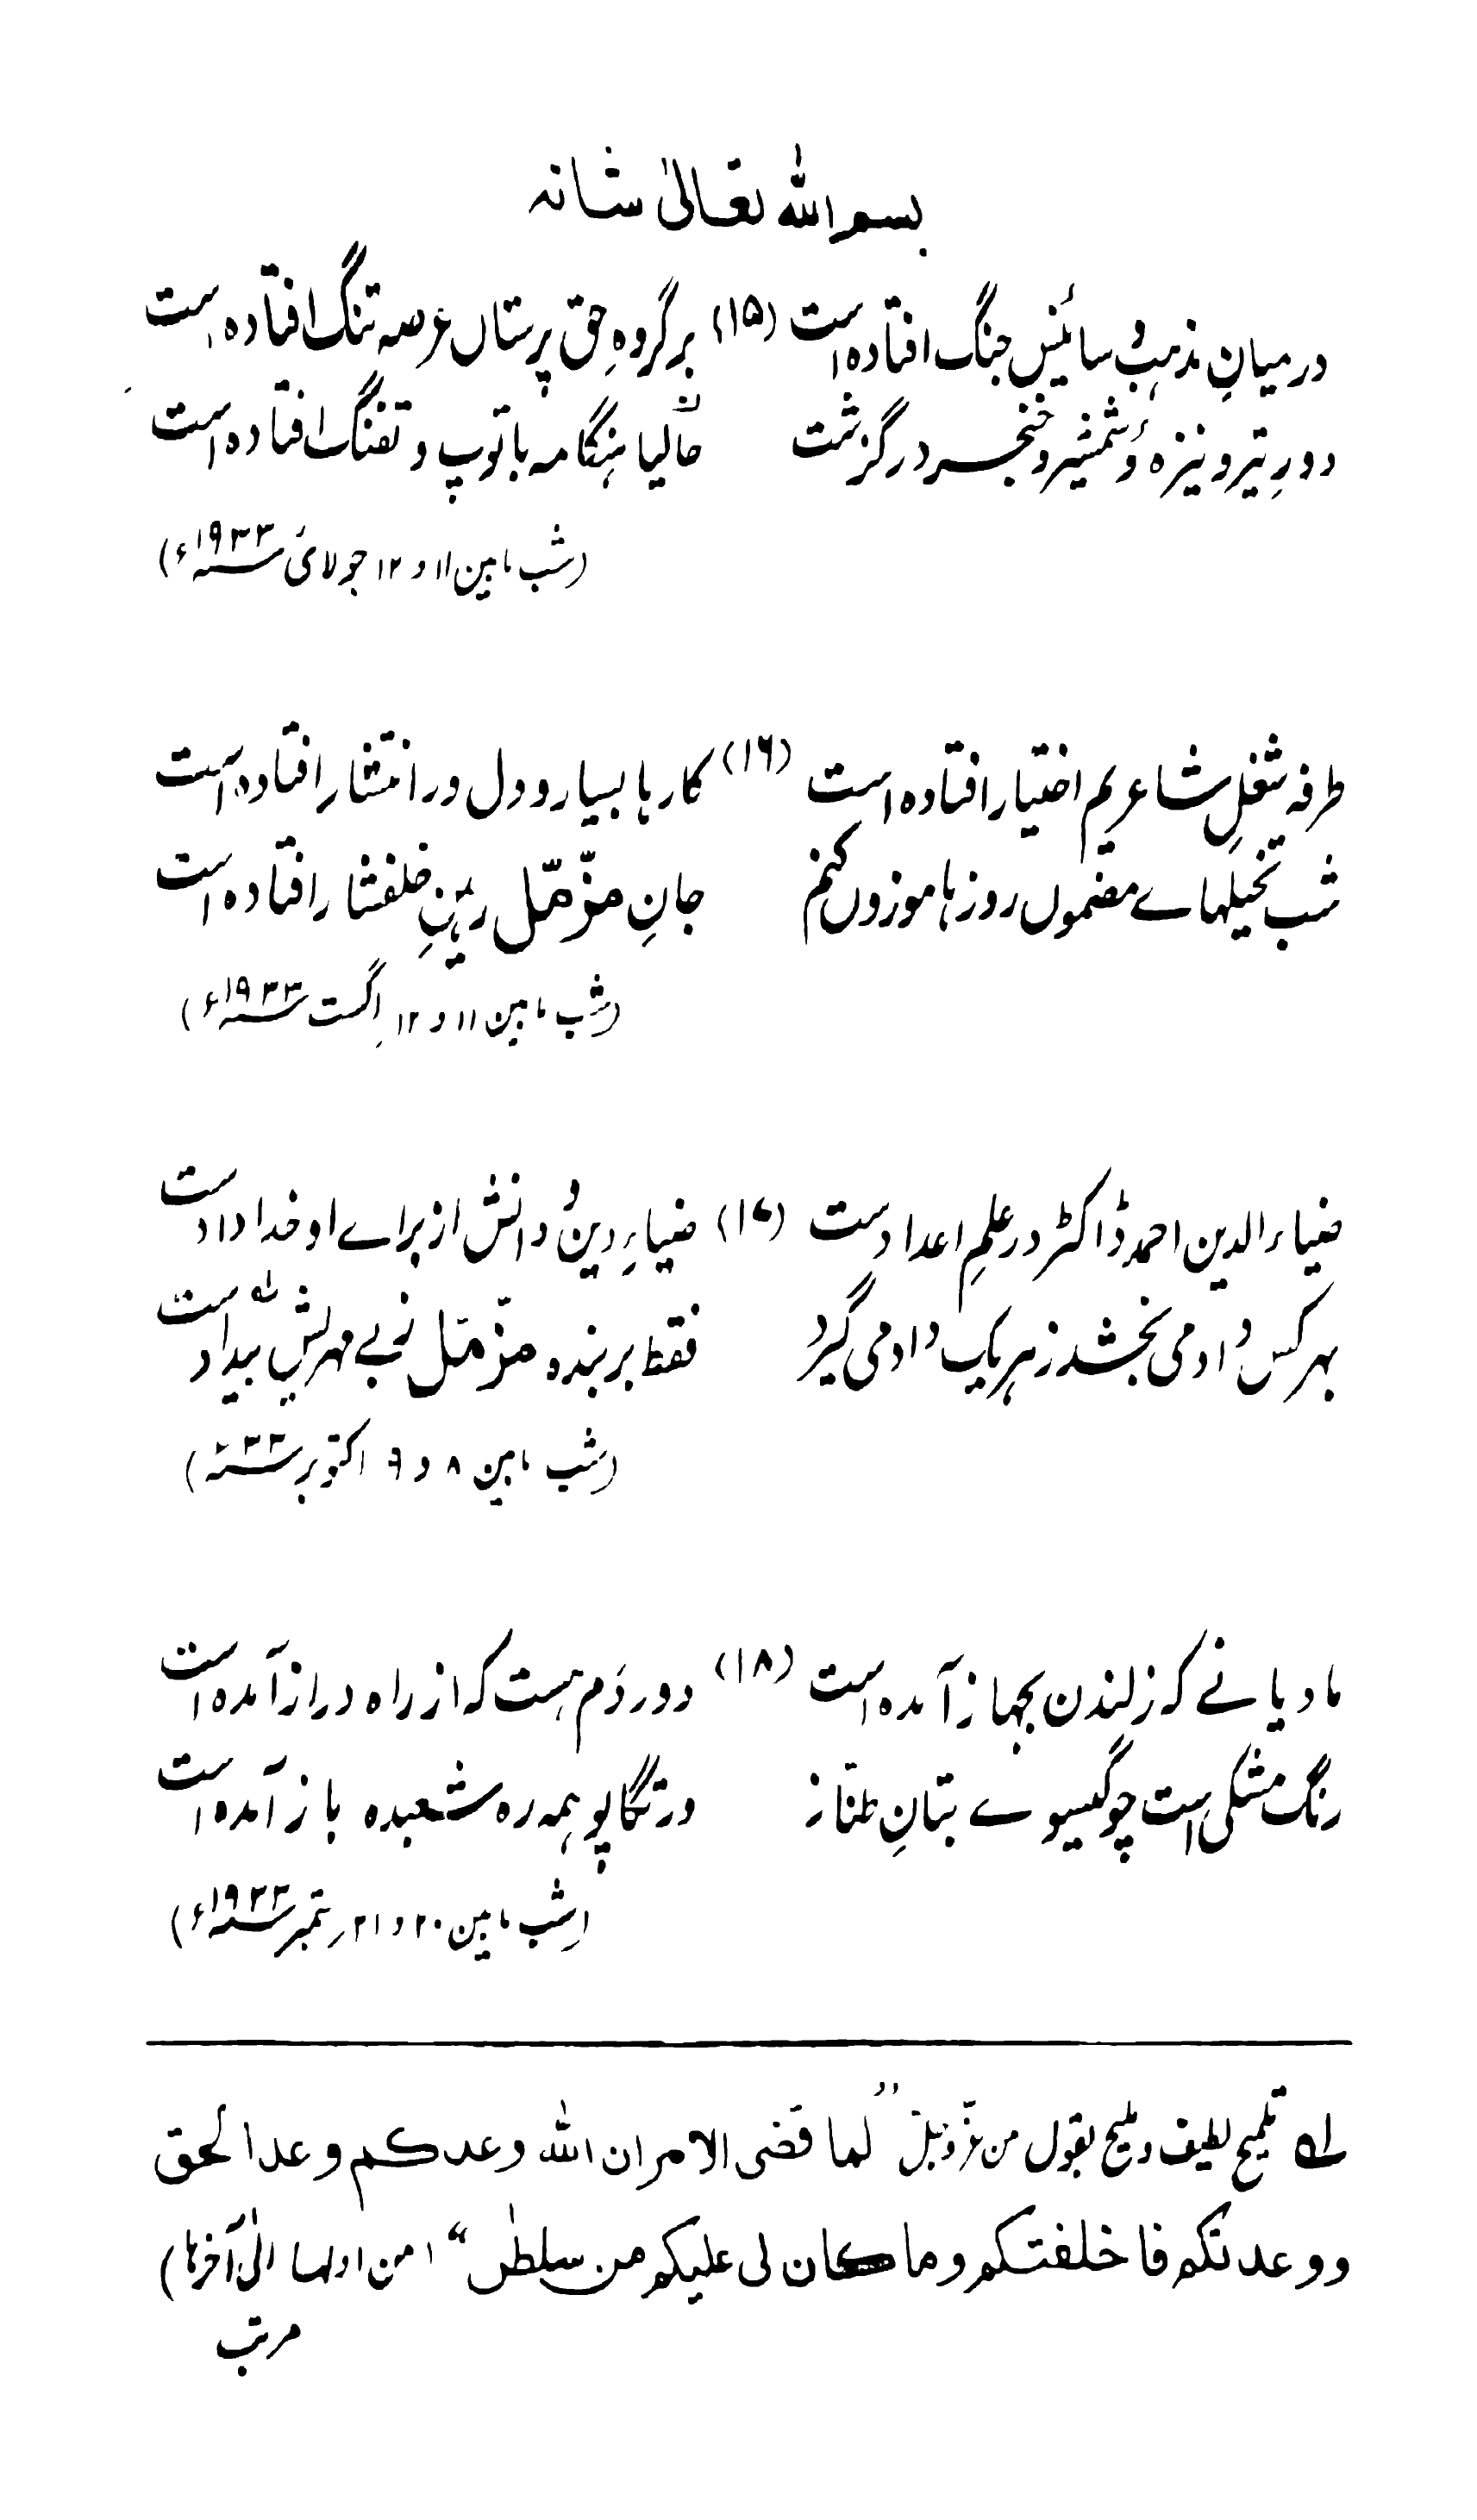 بسم الله تعالیٰ شانہ
درمیانِ مذہب و سائنس جنگ افتادہ است (۱۵) بر گروہِ حق پرستاں عرصہ تنگ افتادہ است
دورِ تیر و نیزہ و شمشیر و خنجر در گزشت حالیا ہنگامہ با توپ و تفنگ افتادہ است
(شب مابین ۱۱ و ۱۲ جولائی ۱۹۳۳ء)
طرفہ شغلِ شاعریم اختیار افتادہ است (۱۶) کارہا بسیار و دل در انتشار افتادہ است
شب تخیلہائے مضموں روزہا موزوں کنم جانِ مزّمّل رہینِ خلفشار افتادہ است
(شب مابین ۱۱ و ۱۲ اگست ۱۹۳۳ء)
ضیاء الدین احمد ڈاکٹر در علمِ اعدادست (۱۷) ضیاءِ دین و دانش از برائے او خدا دادست
بہر کس داد می بخشد ز ہر یک داد می گیرد فقط بر بندہ مزّمّل بے مہرش بیدادست
(شب مابین ۸ و ۹ اکتوبر ۳۳ء)
مادیانے کہ ز لندن بجہاز آمدہ است (۱۸) دور دم ہست کہ از راہ دراز آمدہ است
رنگ مشکی است چو گیسوئے بتانِ طنّاز در تگاپو ہمہ رہ شعبدہ باز آمدہ است
(شب مابین ۲۰ و ۲۱ ستمبر ۱۹۳۳ء)
لہ تلمیح لطیف و ملیح بقول من عزّ وجلّ "لما قضی الامر ان الله وعدکم وعد الحق
ووعدتکم فاخلفتکم وما کان لی علیکم من سلطٰن" (من اولہا الیٰ آخرہا)
مرتب